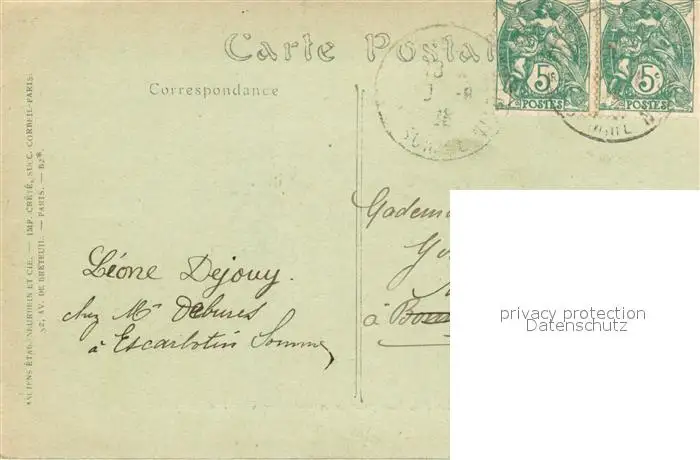 Carte Postal
Correspondance
5c
POSTES
5c
POSTES
Léone Dejouy.
chez Mr Debures
à Escarbotin Somme
Gadem
à
privacy protection
Datenschutz
ANCIENS ÉTAB. NEURDEIN ET CIE. — IMP. CRÉTÉ, SUCC. CORBEIL-PARIS.
52, AV. DE BRETEUIL. — PARIS. —